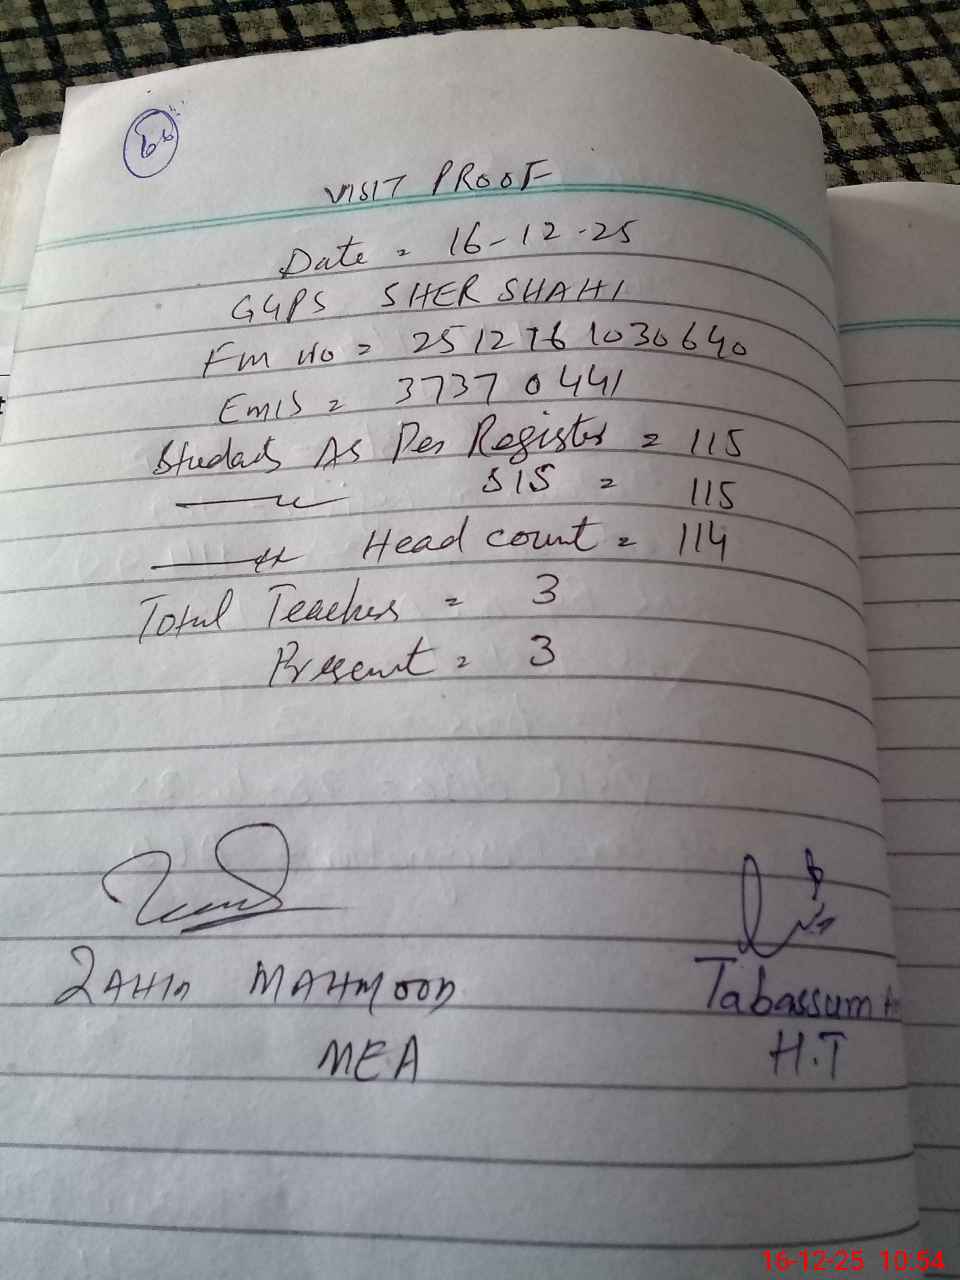 66
VISIT PROOF
Date = 16-12-25
GGPS SHER SHAHI
Fm No = 2512761030640
EMIS = 37370441
Students As Per Register = 115
SIS = 115
Head count = 114
Total Teachers = 3
Present = 3
ZAHID MAHMOOD
MEA
Tabassum
H.T
16-12-25 10:54